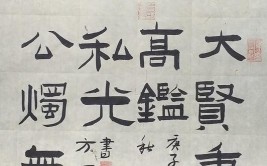 大賢秉
高鑑
庚子
秋
公燭無
私光
書
方